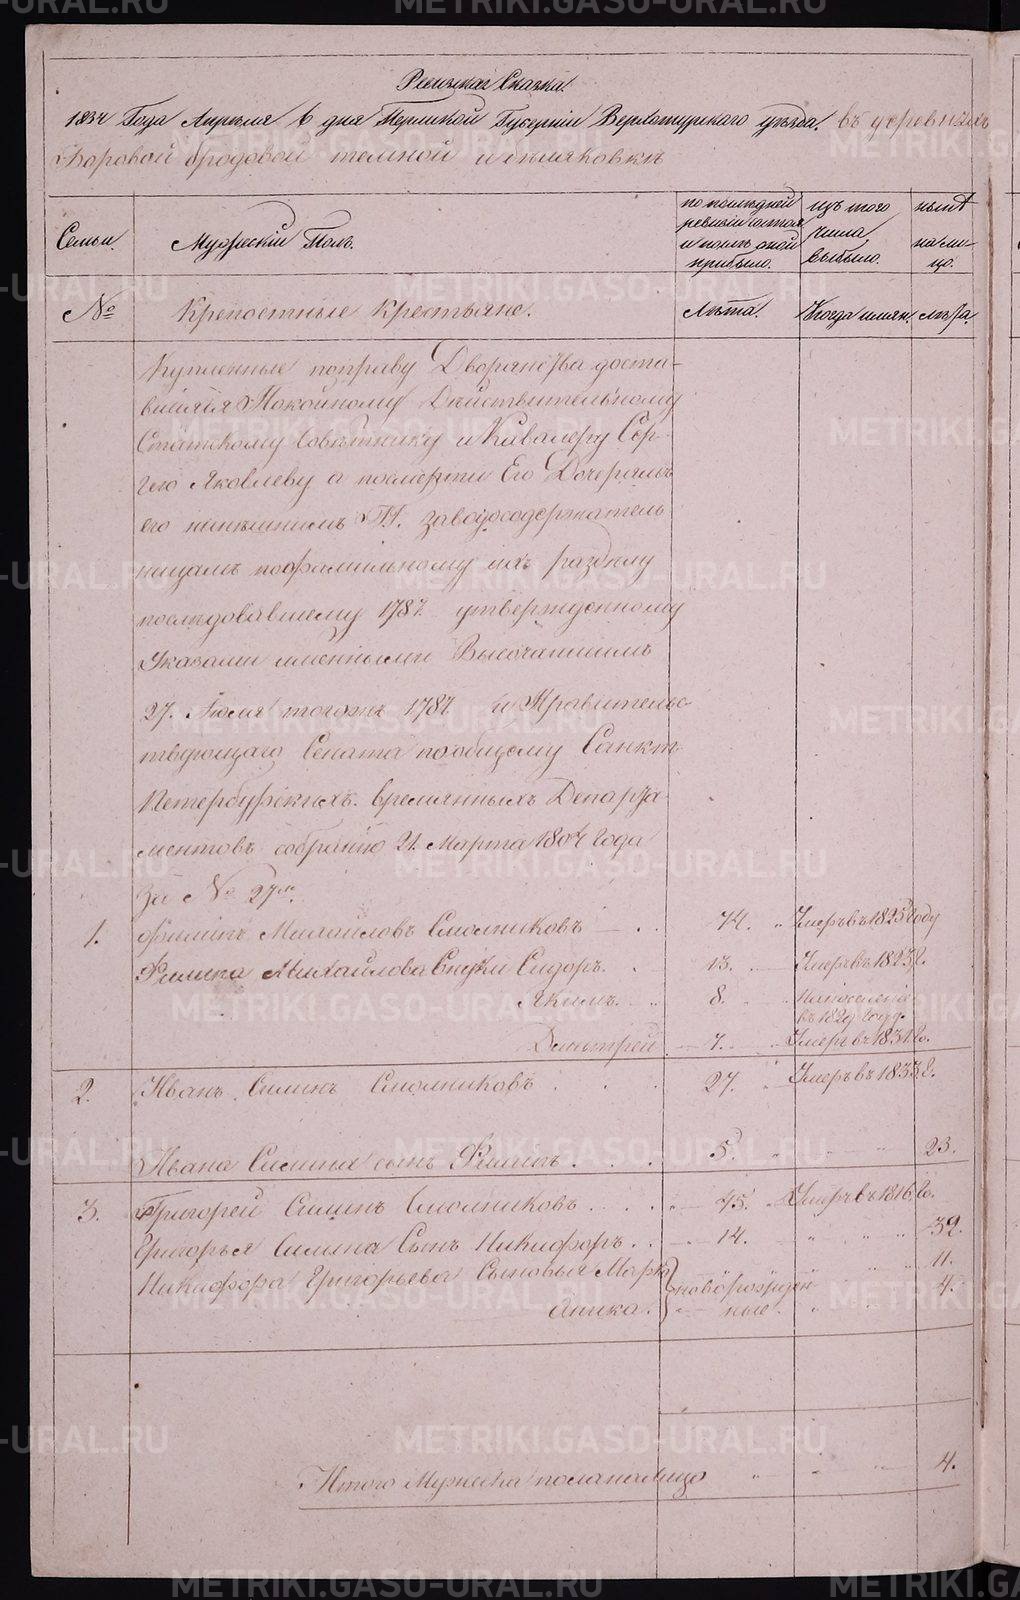 Ревизская Сказка
1834 Года Апреля 6 дня Пермской Губернии Верхотурского уезда. въ деревняхъ
Боровой бродовой темной и
Семьи.
Мужеский Полъ.
по последней ревизии состояло и после оной прибыло.
изъ того числа выбыло.
ныне на лицо.
№
Крепостные Крестьяне.
Лета.
Когда имян.
лета.
Купленные поправу Дворянства доста-
вшияся Покойному Действительному
Статскому Советнику и Кавалеру Сер-
гею Яковлеву а посмерти Его Дочерямъ
его нынешнимъ Гг. заводосодержатель
ницамъ пофамильному ихъ разделу
последовавшему 1787. утвержденному
Указами имянными Высочайшимъ
27. Июля тогожъ 1787. и Правительс-
твующаго Сената пообщему Санкт-
Петербурскихъ. времянныхъ Департа
ментовъ собранию 21. Марта 1804 Года
За № 27м.
1. Филипъ Михайловъ Смолниковъ 74. Умеръ въ 1825 Году
Филипа Михайлова Внуки Сидоръ. 13. Умеръ въ 1823 Г.
Якимъ. 8. на поселение въ 1829 Году.
Дмитрей 7. Умеръ въ 1831. Го.
2. Иванъ Силинъ Смолниковъ 27. Умеръ въ 1833 Г.
Ивана Силина сынъ Филипъ. 5. 23.
3. Григорей Силинъ Смолниковъ 45. Умеръ въ 1816. Го.
Григорья Силина Сынъ Никифоръ. 14. 32.
Никифора Григорьева Сыновья Марко 11.
Аника. новорожден ные. 4.
Итого Мужеска пола налицо 4.
METRIKI.GASO-URAL.RU